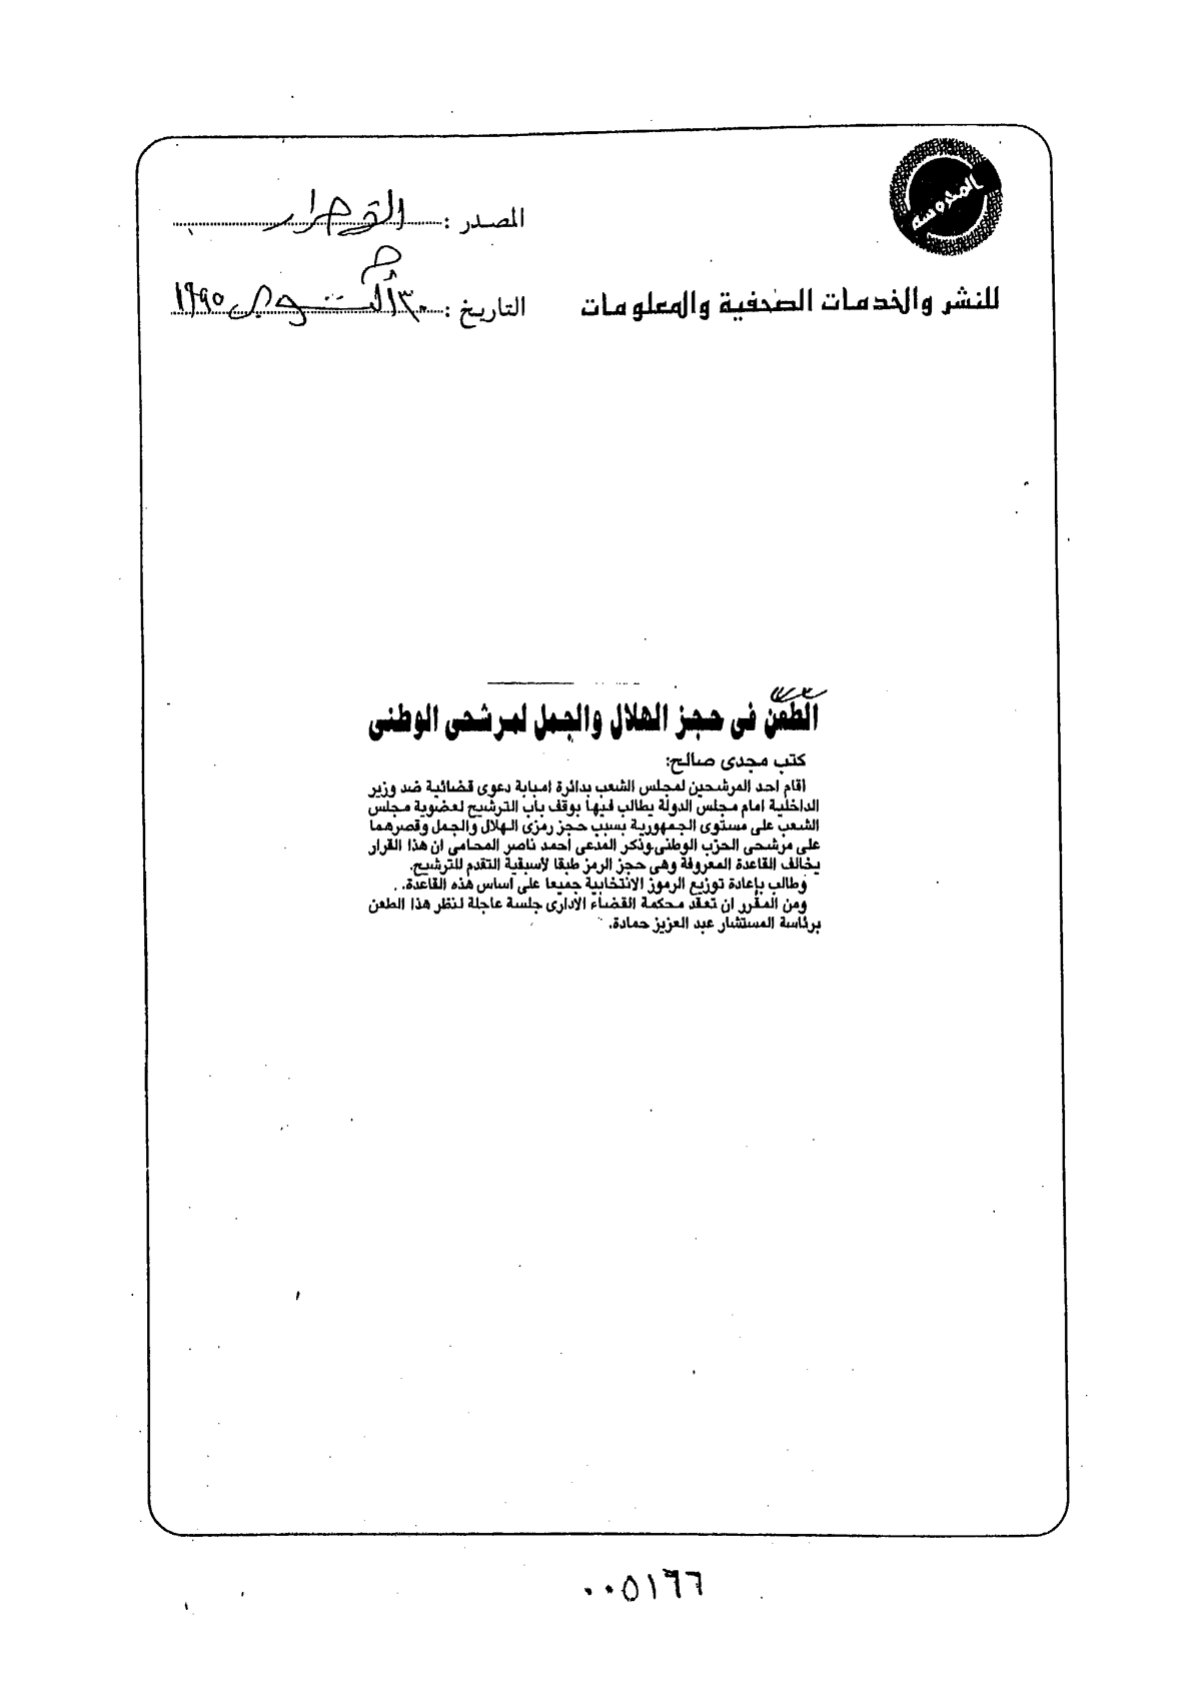 المحروسة
المصدر :
التاريخ : ٣٠ أكتوبر ١٩٩٥
للنشر والخدمات الصحفية والمعلومات
الطعن فى حجز الهلال والجمل لمرشحى الوطنى
كتب مجدى صالح:
اقام احد المرشحين لمجلس الشعب بدائرة امبابة دعوى قضائية ضد وزير
الداخلية امام مجلس الدولة يطالب فيها بوقف باب الترشيح لعضوية مجلس
الشعب على مستوى الجمهورية بسبب حجز رمزى الهلال والجمل وقصرهما
على مرشحى الحزب الوطنى.وذكر المدعى أحمد ناصر المحامى ان هذا القرار
يخالف القاعدة المعروفة وهى حجز الرمز طبقا لأسبقية التقدم للترشيح.
وطالب بإعادة توزيع الرموز الانتخابية جميعا على اساس هذه القاعدة.
ومن المقرر ان تعقد محكمة القضاء الادارى جلسة عاجلة لنظر هذا الطعن
برئاسة المستشار عبد العزيز حمادة.
٠٠٥١٦٦